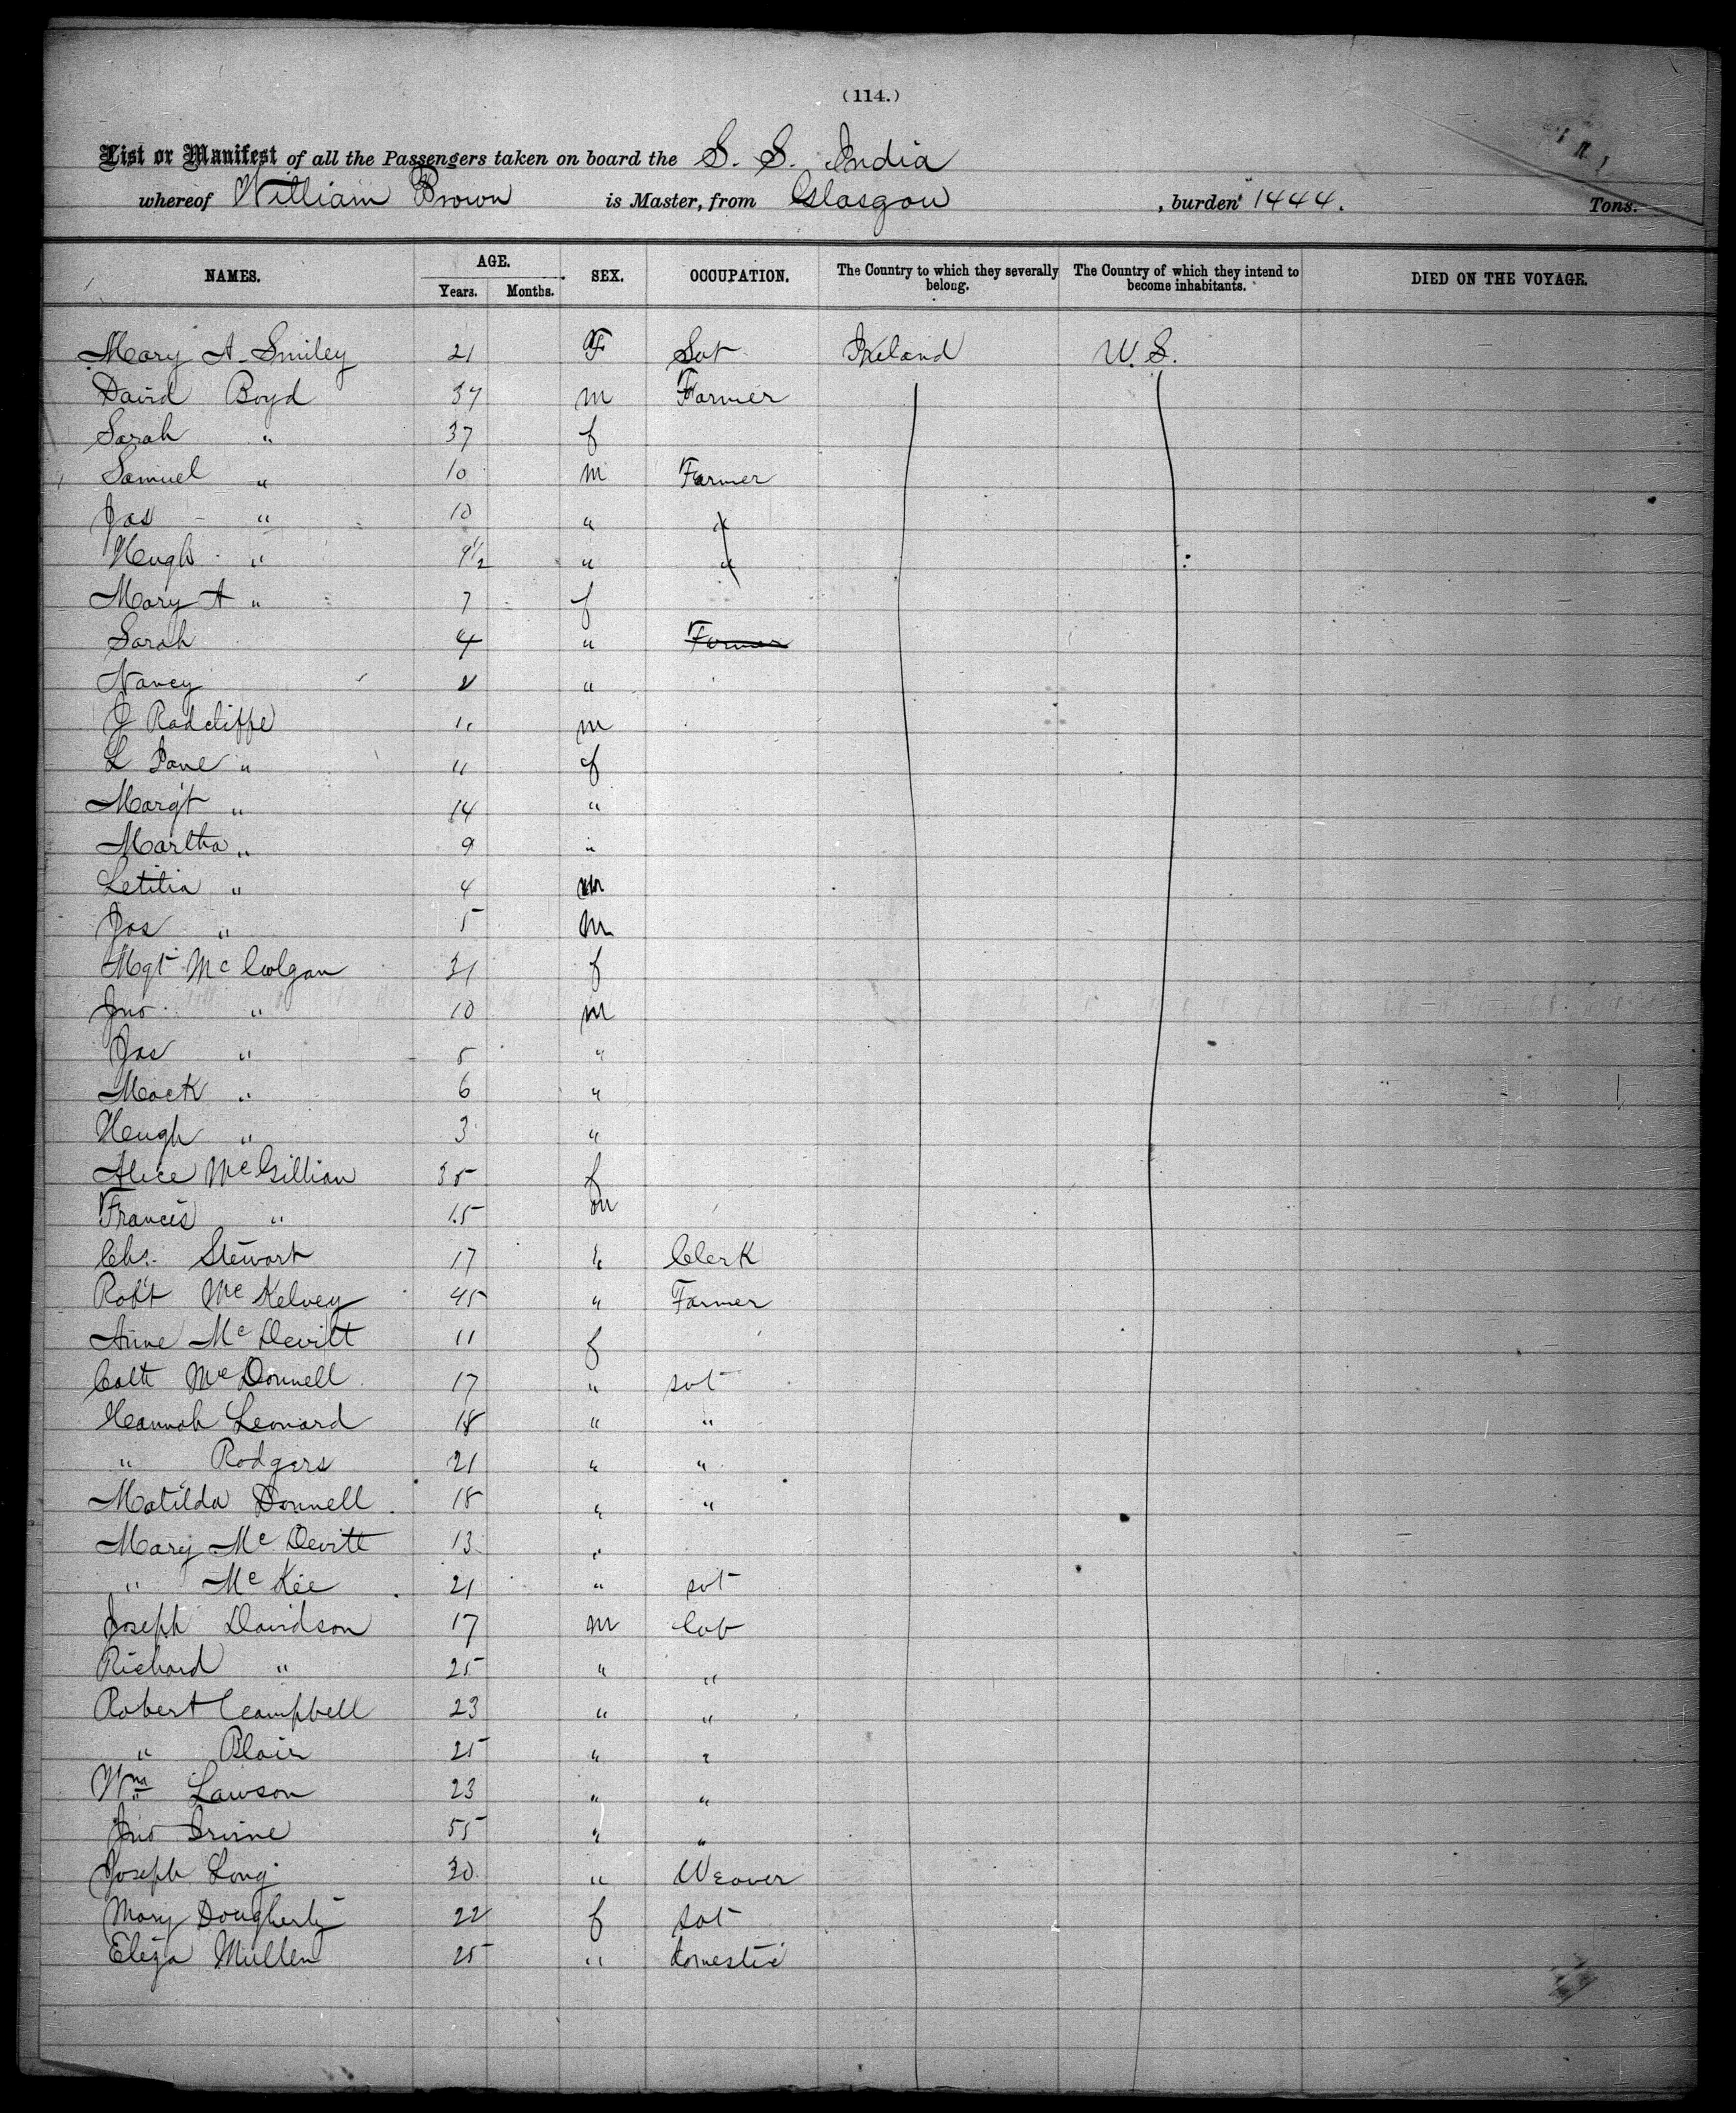 (114.)
List or Manifest of all the Passengers taken on board the S. S. India
whereof William Brown is Master, from Glasgow, burden 1444. Tons.
NAMES. AGE. Years. Months. SEX. OCCUPATION. The Country to which they severally belong. The Country of which they intend to become inhabitants. DIED ON THE VOYAGE.
Mary A. Smiley 21 F Svt Ireland U.S.
David Boyd 37 m Farmer
Sarah " 37 f
Samuel " 10 m Farmer
Jas " 10 " "
Hugh " 9½ " "
Mary A " 7 f
Sarah 4 " Farmer
Nancy "
J Radcliffe 11 m
L Jane " 11 f
Margt " 14 "
Martha " 9 "
Letitia " 4 m
Jas " 5 m
Mgt McColgan 31 f
Jno " 10 m
Jas " 5 "
Mack " 6 "
Hugh " 3 "
Alice McGillian 35 f
Francis " 15 m
Chs. Stewart 17 " Clerk
Robt McKelvey 45 " Farmer
Anne McDevitt 11 f
Cath McDonnell 17 " svt
Hannah Leonard 18 " "
" Rodgers 21 " "
Matilda Donnell 18 " "
Mary McDevitt 13 "
" McKee 21 " svt
Joseph Davidson 17 m Lab
Richard " 25 " "
Robert Campbell 23 " "
" Blair 25 " "
Wm Lawson 23 " "
Jno Irvine 55 " "
Joseph Long 30 " Weaver
Mary Dougherty 22 f svt
Eliza Mullen 25 " domestic